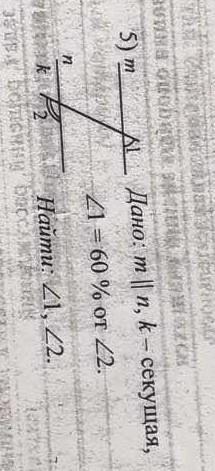 5) m
1
Дано: m || n, k – секущая,
n
k
2
∠1 = 60 % от ∠2.
Найти: ∠1, ∠2.